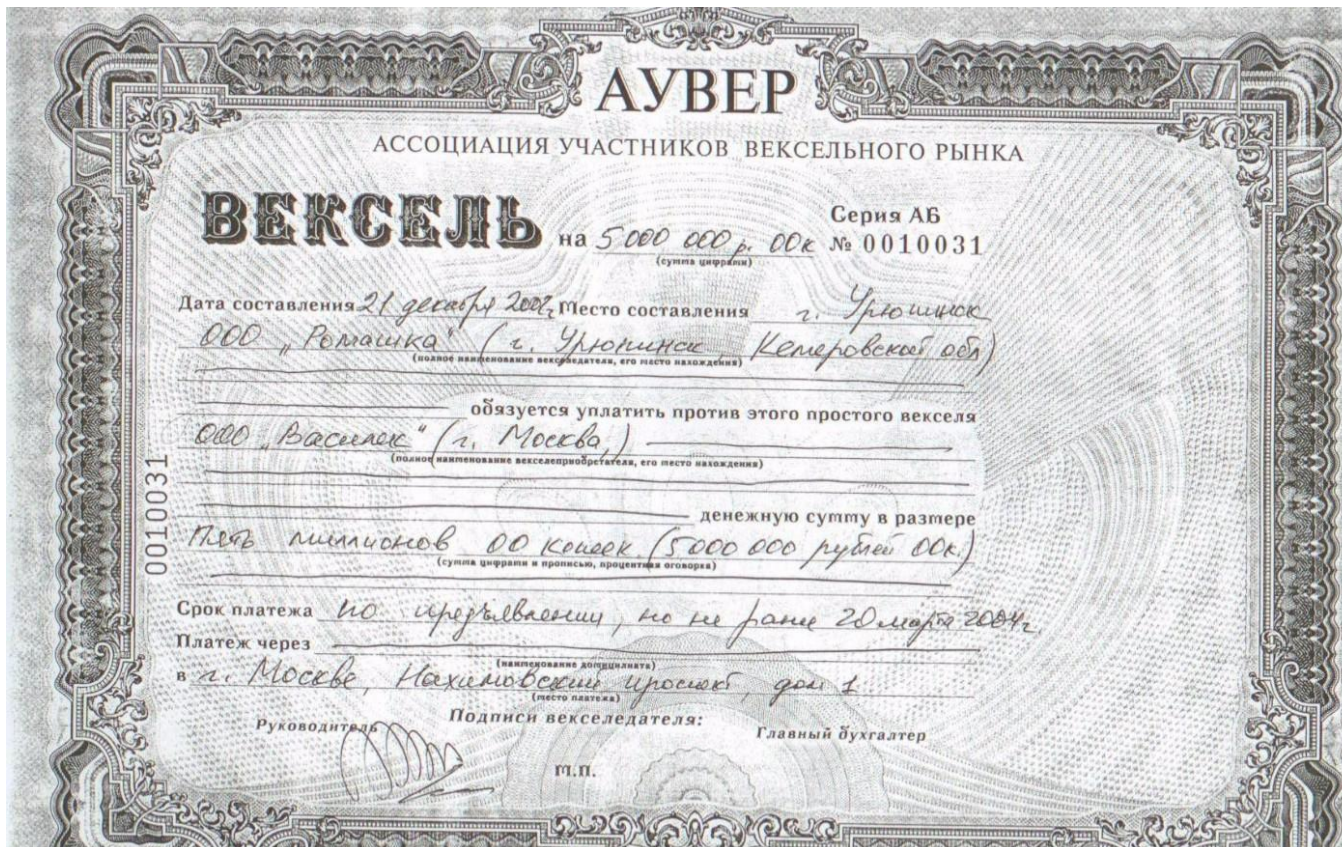 АУВЕР
АССОЦИАЦИЯ УЧАСТНИКОВ ВЕКСЕЛЬНОГО РЫНКА
ВЕКСЕЛЬ на 5 000 000 р. 00к
(сумма цифрами)
Серия АБ
№ 0010031
Дата составления 21 декабря Место составления г. Урюпинск
ООО „Ромашка" (г. Урюпинск, Кемеровской обл)
(полное наименование векселедателя, его место нахождения)
обязуется уплатить против этого простого векселя
ООО „Василек" (г. Москва,)
(полное наименование векселеприобретателя, его место нахождения)
денежную сумму в размере
Пять миллионов 00 копеек (5 000 000 рублей 00к.)
(сумма цифрами и прописью, процентная оговорка)
Срок платежа по предъявлении, но не ранее 20 марта 2004г.
Платеж через
(наименование домицилиата)
в г. Москве, Нахимовский проспект, дом 1
(место платежа)
Подписи векселедателя:
Руководитель
Главный бухгалтер
М.П.
0010031